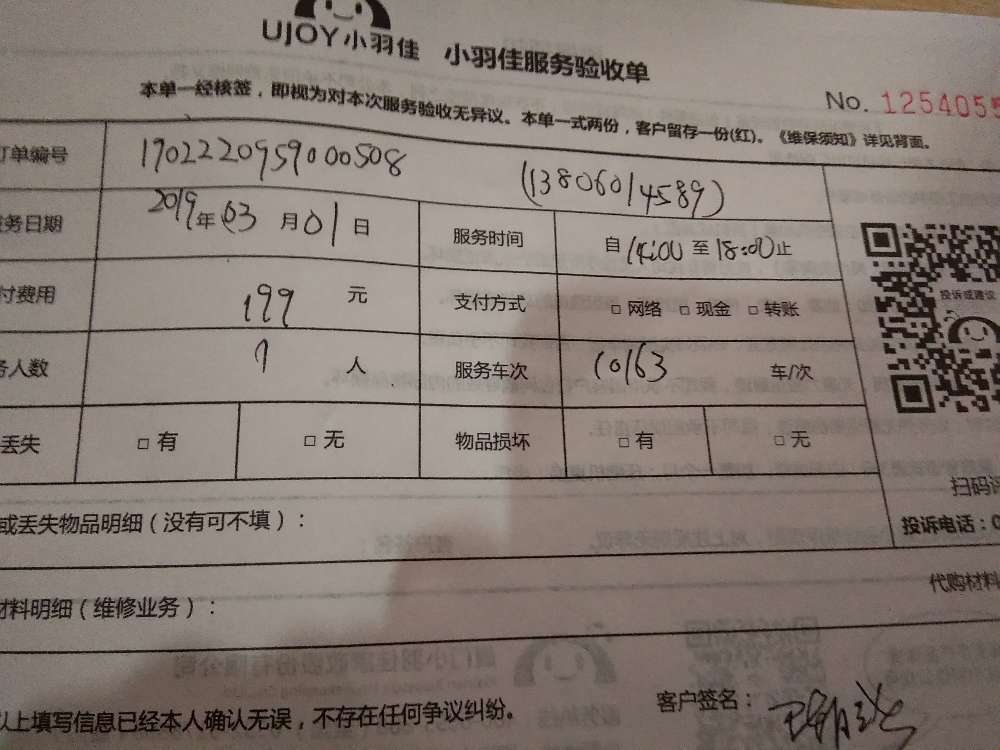 UJOY小羽佳 小羽佳服务验收单
No. 1254055
本单一经核签，即视为对本次服务验收无异议。本单一式两份，客户留存一份(红)。《维保须知》详见背面。
订单编号 1702220959000508 (13806014589)
服务日期 2019年03月01日 服务时间 自14:00至18:00止
付费用 199 元 支付方式 □ 网络 □ 现金 □ 转账
务人数 1 人 服务车次 10163 车/次
丢失 □ 有 □ 无 物品损坏 □ 有 □ 无
投诉或建议
扫码
投诉电话：0
或丢失物品明细（没有可不填）：
代购材料
材料明细（维修业务）：
以上填写信息已经本人确认无误，不存在任何争议纠纷。
客户签名：